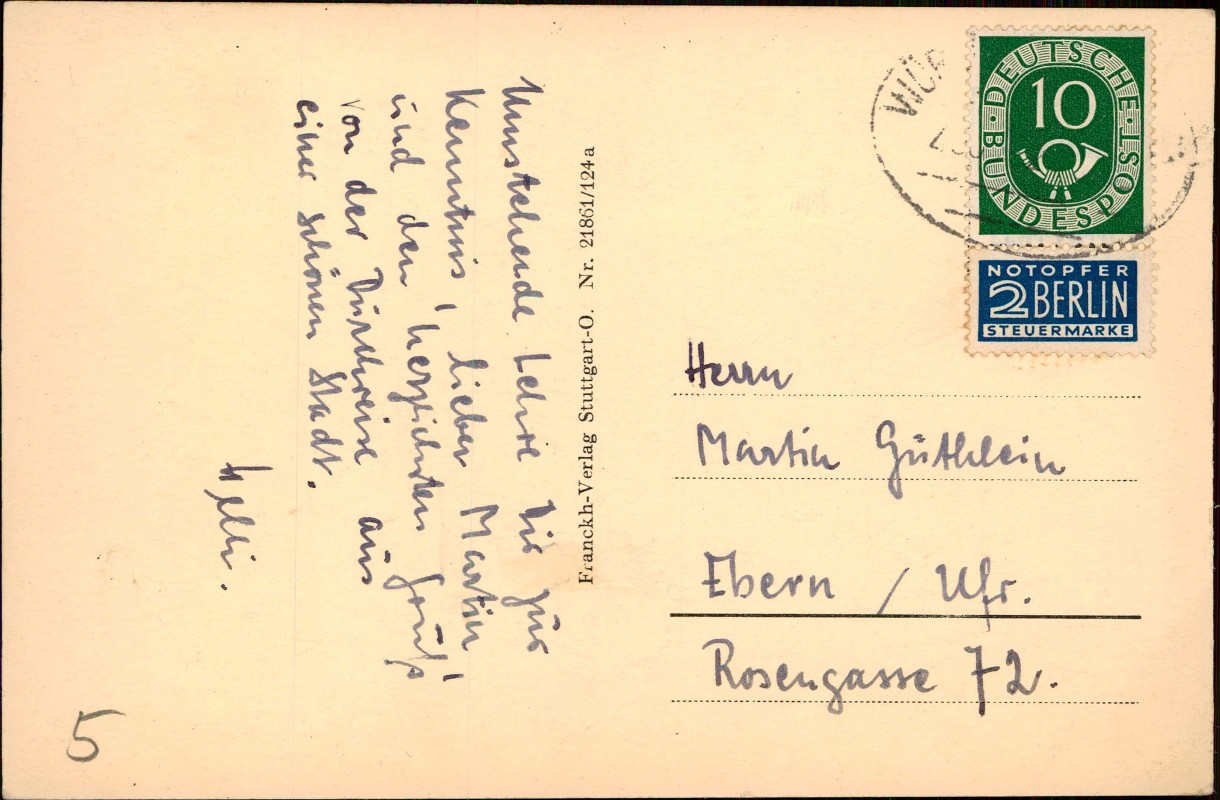 Umstehende Lehre Dir zur
Kenntnis, lieber Martin,
und den herzlichsten Gruß
von der Durchreise aus
einer schönen Stadt.
Franckh-Verlag Stuttgart-O. Nr. 21861/124a
WÜR
DEUTSCHE BUNDESPOST
10
NOTOPFER
2 BERLIN
STEUERMARKE
Herrn
Martin Güthlein
Ebern / Ufr.
Rosengasse 72.
5